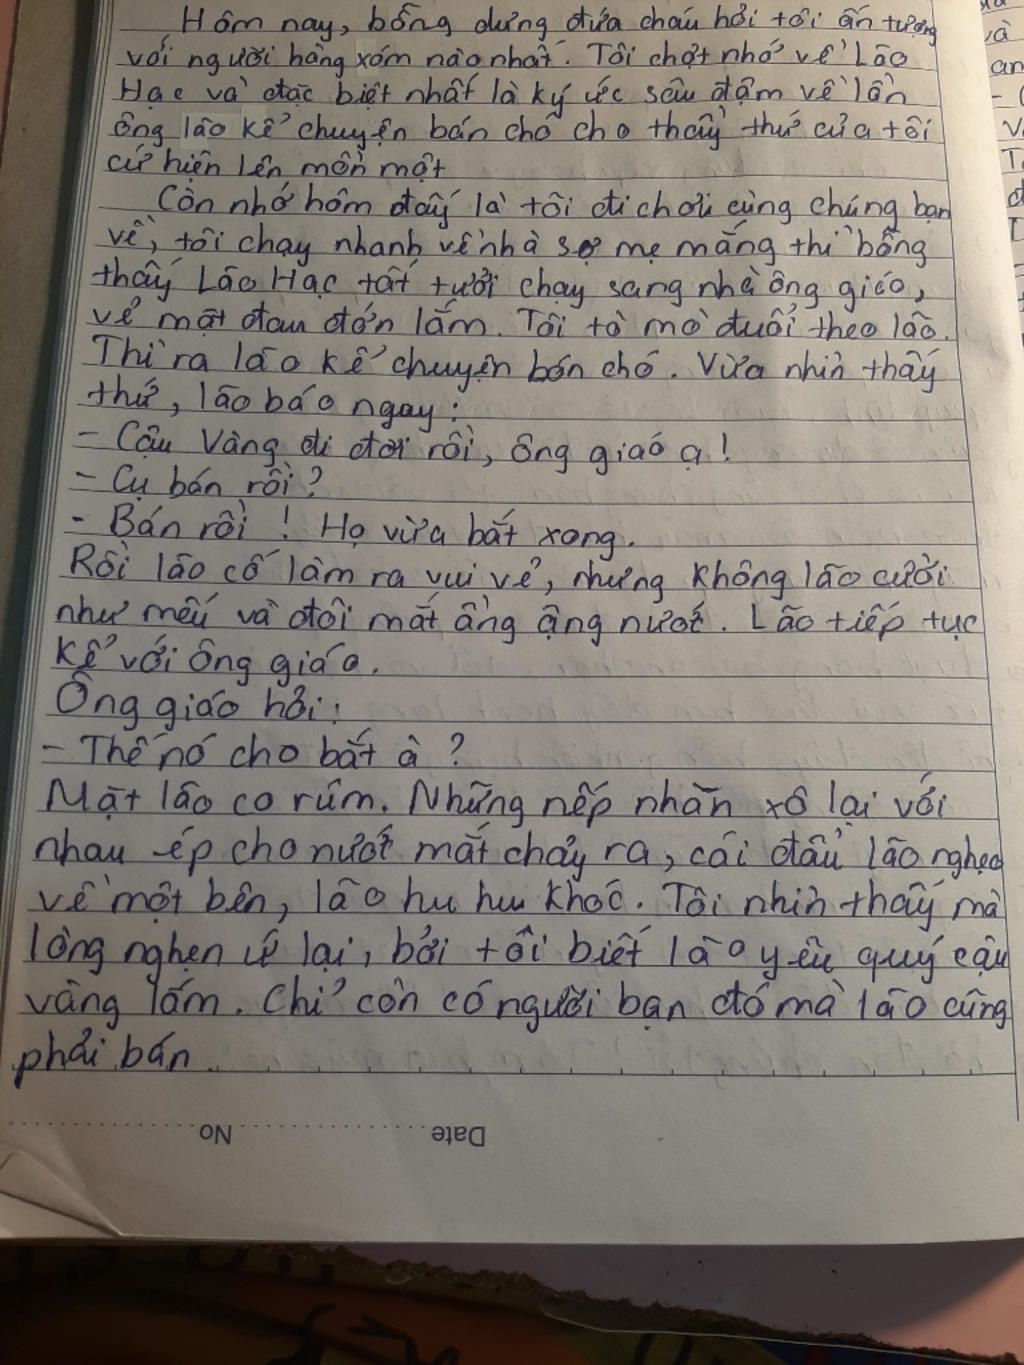 Hôm nay, bỗng dưng đứa cháu hỏi tôi ấn tượng
với người hàng xóm nào nhất. Tôi chợt nhớ về Lão
Hạc và đặc biệt nhất là ký ức sâu đậm về lần
ông lão kể chuyện bán chó cho thầy thứ của tôi
cứ hiện lên mồn một
Còn nhớ hôm đấy là tôi đi chơi cùng chúng bạn
về, tôi chạy nhanh về nhà sợ mẹ mắng thì bỗng
thấy Lão Hạc tất tưởi chạy sang nhà ông giáo,
vẻ mặt đau đớn lắm. Tôi tò mò đuổi theo lão.
Thì ra lão kể chuyện bán chó. Vừa nhìn thấy
thứ, lão báo ngay:
- Cậu Vàng đi đời rồi, ông giáo ạ!
- Cụ bán rồi?
- Bán rồi! Họ vừa bắt xong.
Rồi lão cố làm ra vui vẻ, nhưng không lão cười
như mếu và đôi mắt ầng ậng nước. Lão tiếp tục
kể với ông giáo.
Ông giáo hỏi:
- Thế nó cho bắt à?
Mặt lão co rúm. Những nếp nhăn xô lại với
nhau ép cho nước mắt chảy ra, cái đầu lão nghẹo
về một bên, lão hu hu khóc. Tôi nhìn thấy mà
lòng nghẹn ứ lại, bởi tôi biết lão yêu quý cậu
vàng lắm. Chỉ còn có người bạn đó mà lão cũng
phải bán
Date No